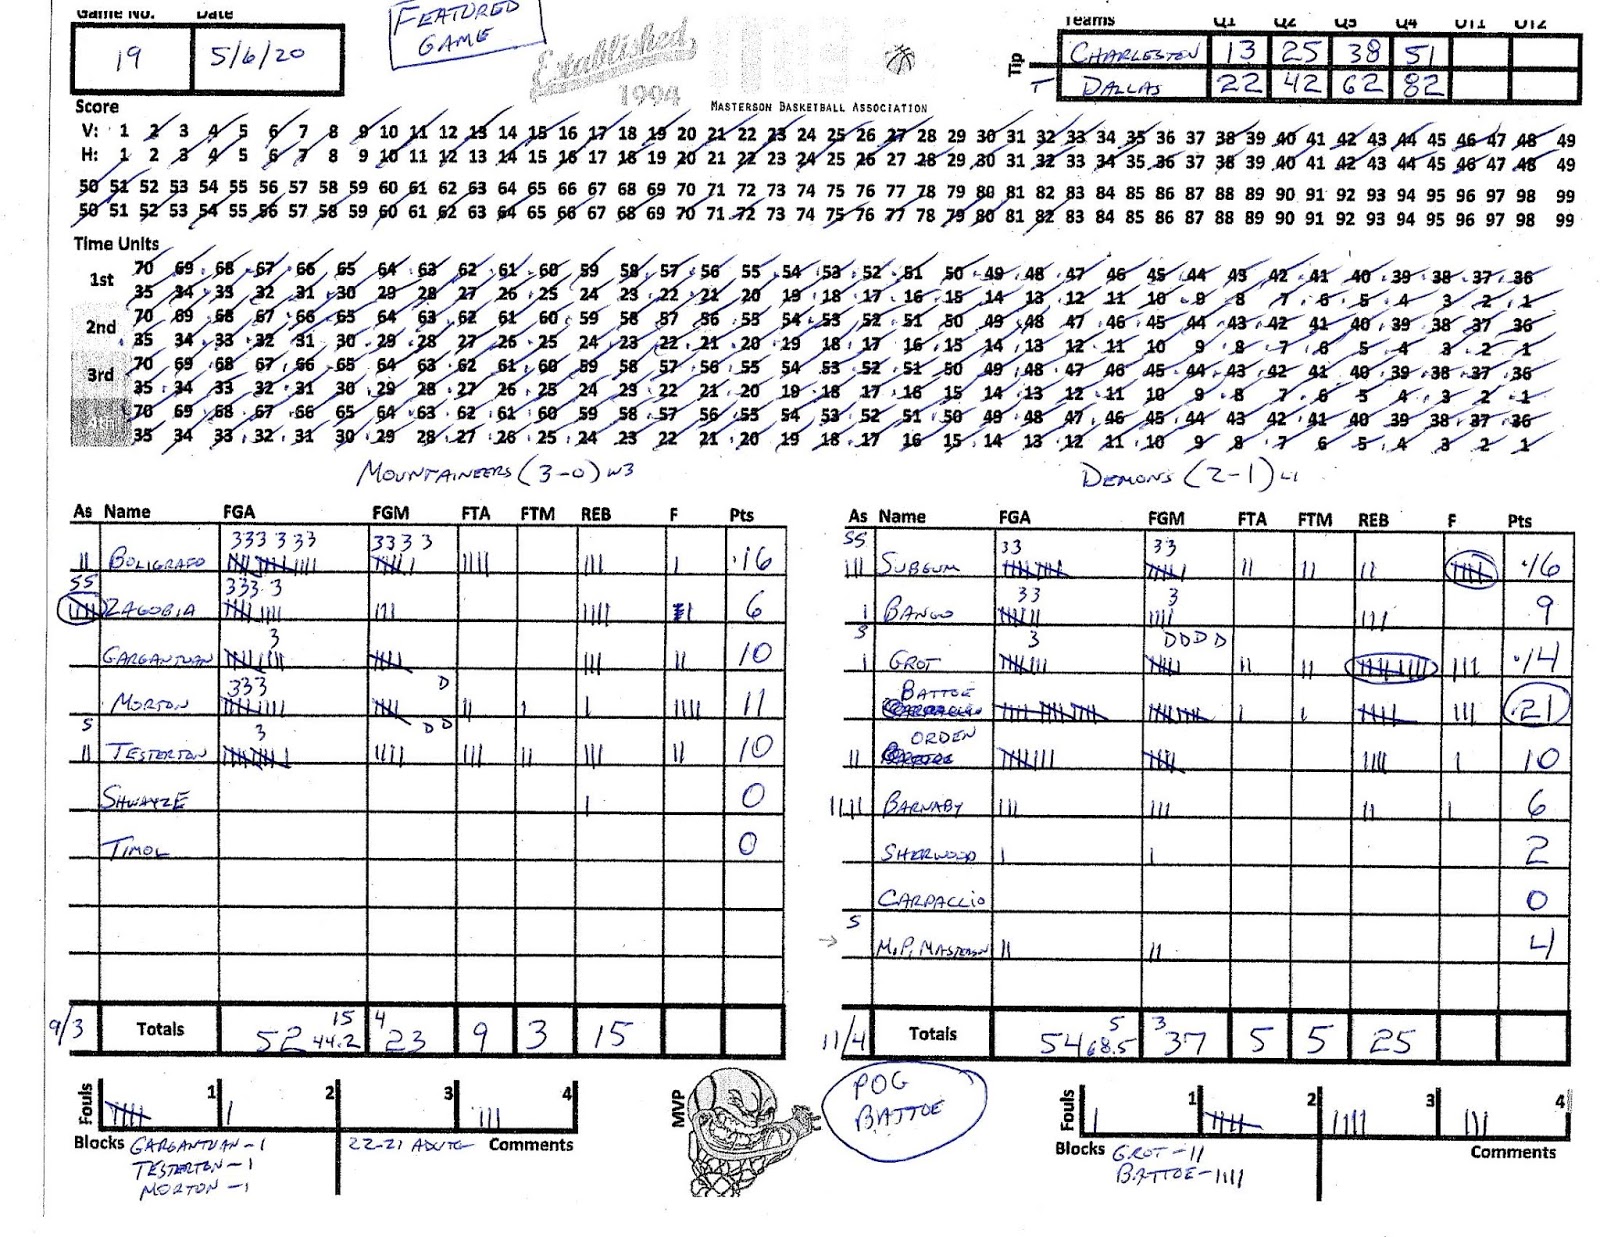 Game No. Date
19 5/6/20
FEATURED
GAME
Established
1994
MASTERSON BASKETBALL ASSOCIATION
Teams Q1 Q2 Q3 Q4 OT1 OT2
Tip
CHARLESTON 13 25 38 51
T DALLAS 22 42 62 82
Score
V: 1 2 3 4 5 6 7 8 9 10 11 12 13 14 15 16 17 18 19 20 21 22 23 24 25 26 27 28 29 30 31 32 33 34 35 36 37 38 39 40 41 42 43 44 45 46 47 48 49
H: 1 2 3 4 5 6 7 8 9 10 11 12 13 14 15 16 17 18 19 20 21 22 23 24 25 26 27 28 29 30 31 32 33 34 35 36 37 38 39 40 41 42 43 44 45 46 47 48 49
50 51 52 53 54 55 56 57 58 59 60 61 62 63 64 65 66 67 68 69 70 71 72 73 74 75 76 77 78 79 80 81 82 83 84 85 86 87 88 89 90 91 92 93 94 95 96 97 98 99
50 51 52 53 54 55 56 57 58 59 60 61 62 63 64 65 66 67 68 69 70 71 72 73 74 75 76 77 78 79 80 81 82 83 84 85 86 87 88 89 90 91 92 93 94 95 96 97 98 99
Time Units
1st 70 69 68 67 66 65 64 63 62 61 60 59 58 57 56 55 54 53 52 51 50 49 48 47 46 45 44 43 42 41 40 39 38 37 36
35 34 33 32 31 30 29 28 27 26 25 24 23 22 21 20 19 18 17 16 15 14 13 12 11 10 9 8 7 6 5 4 3 2 1
2nd 70 69 68 67 66 65 64 63 62 61 60 59 58 57 56 55 54 53 52 51 50 49 48 47 46 45 44 43 42 41 40 39 38 37 36
35 34 33 32 31 30 29 28 27 26 25 24 23 22 21 20 19 18 17 16 15 14 13 12 11 10 9 8 7 6 5 4 3 2 1
3rd 70 69 68 67 66 65 64 63 62 61 60 59 58 57 56 55 54 53 52 51 50 49 48 47 46 45 44 43 42 41 40 39 38 37 36
35 34 33 32 31 30 29 28 27 26 25 24 23 22 21 20 19 18 17 16 15 14 13 12 11 10 9 8 7 6 5 4 3 2 1
4th 70 69 68 67 66 65 64 63 62 61 60 59 58 57 56 55 54 53 52 51 50 49 48 47 46 45 44 43 42 41 40 39 38 37 36
35 34 33 32 31 30 29 28 27 26 25 24 23 22 21 20 19 18 17 16 15 14 13 12 11 10 9 8 7 6 5 4 3 2 1
MOUNTAINEERS (3-0) W3
As Name FGA FGM FTA FTM REB F Pts
333 333 3333
BOLIGRAFO 16
SS 333 3
ZAGOBIA 6
3
GARGANTUAN 10
333 D
MORTON 11
S 3 DD
TESTERTON 10
SHWAYZE 0
TIMOL 0
15 4
9/3 Totals 52 44.2 23 9 3 15
Fouls 1 2 3 4
Blocks GARGANTUAN - 1
TESTERTON - 1
MORTON - 1
Comments
DEMONS (2-1) L1
As Name FGA FGM FTA FTM REB F Pts
SS 33 33
SUBGUM 16
33 3
BANGO 9
S 3 DDDD
GROT 14
BATTOE 21
ORDEN 10
BARNABY 6
SHERWOOD 2
CARPACCIO 0
S
M.P. MASTERSON 4
5 3
11/4 Totals 54 68.5 37 5 5 25
MVP
POG
BATTOE
Fouls 1 2 3 4
Blocks GROT - 11
BATTOE - 1111
Comments